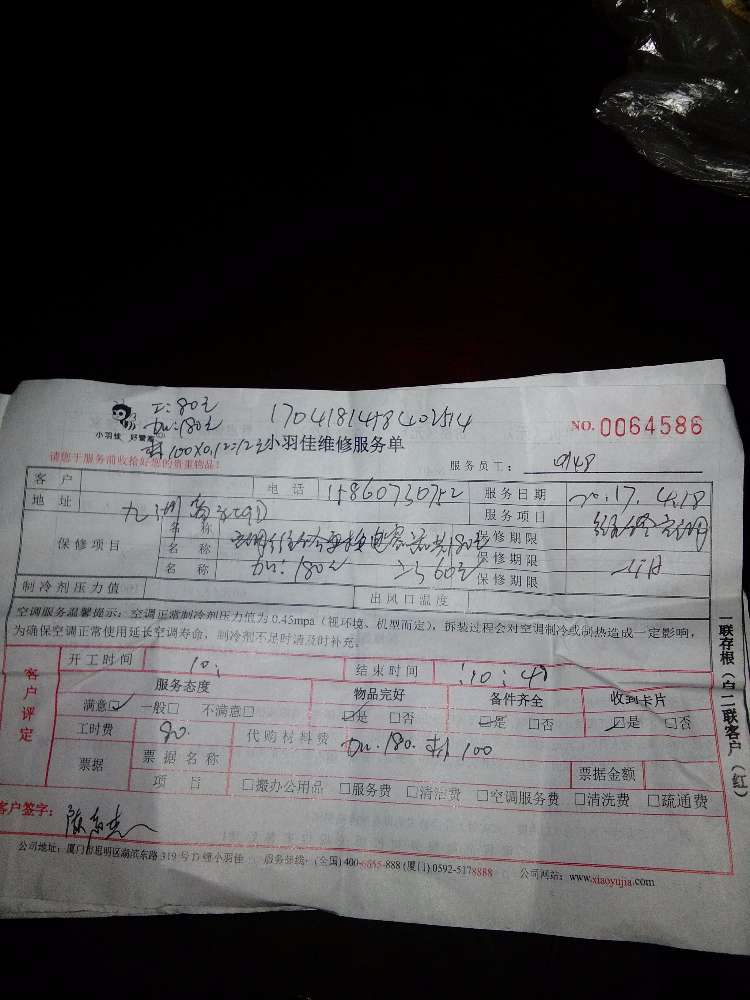 工:80元
加:180元
1704181418402514
材100X0.12=12元
小羽佳 好管家
小羽佳维修服务单
NO. 0064586
请您于服务前收拾好您的贵重物品!
服务员工:
9148
客户
电话
15860730752
服务日期
20.17.4.18
地址
服务项目
保修项目
名称
保修期限
名称
保修期限
名称
加:180元
工:60元
保修期限
制冷剂压力值
出风口温度
空调服务温馨提示:空调正常制冷剂压力值为0.45mpa(视环境、机型而定),拆装过程会对空调制冷或制热造成一定影响,
为确保空调正常使用延长空调寿命,制冷剂不足时请及时补充。
客户评定
开工时间
10:
结束时间
:10:4
服务态度
物品完好
备件齐全
收到卡片
满意☑ 一般□ 不满意□
☑是 □否
☑是 □否
☑是 □否
工时费
80.
代购材料费
加.180.材100
票据
票据名称
票据金额
项目
□搬办公用品 □服务费 □清洁费 □空调服务费 □清洗费 □疏通费
客户签字:
公司地址:厦门市思明区湖滨东路319号D幢小羽佳 服务热线:(全国)400-6655-888(厦门)0592-5178888 公司网站:www.xiaoyujia.com
一联存根(白)二联客户(红)